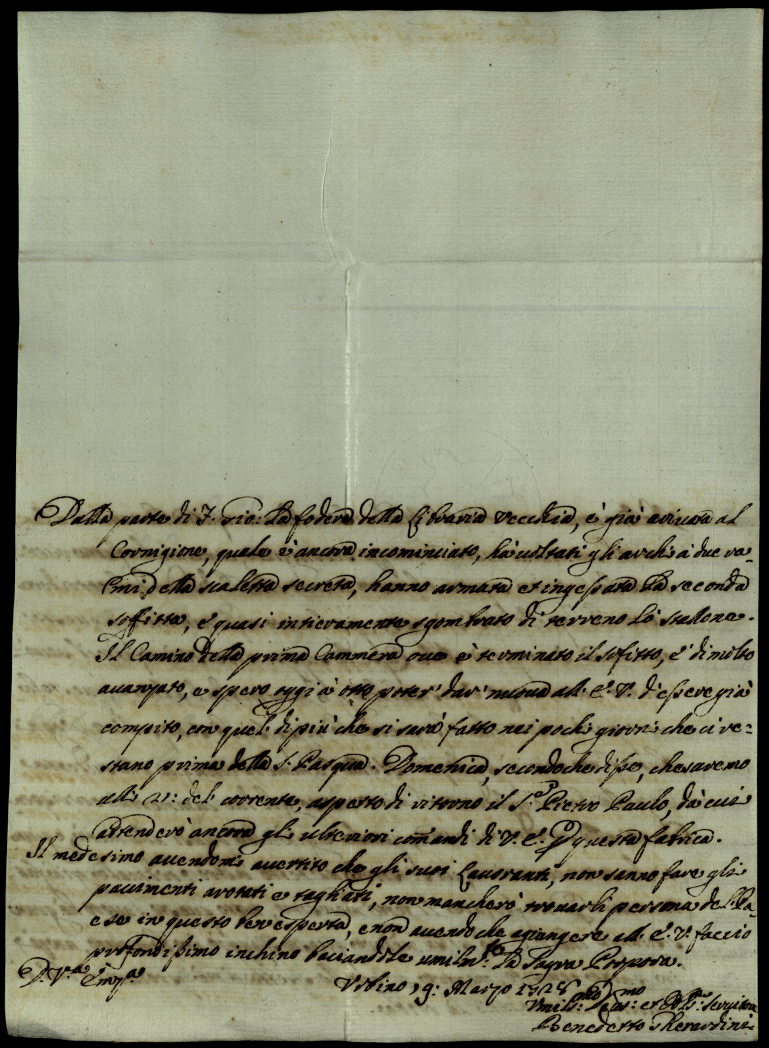 Dalla parte di S. Gio: la fodera della libraria vecchia, è già arivata al
Cornigione, quale è ancora incominciato, hà voltati gli archi à due ra-
mi della scaletta secreta, hanno armata et ingessata la seconda
soffitta, e quasi intieramente sgombrato di terreno lo stallone.
Il Camino della prima Cammera ove è terminato il sofitto, e' di molto
avanzato, e spero oggi à otto poter' dar' nuova all' E. V. d'essere già
compito, con quel' di più che si sarà fatto nei pochi giorni che ci re-
stano prima della S. Pasqua. Domenica, secondoche disse, che saremo
alli 21: del corrente, aspetto di ritorno il S.r Pietro Paulo, da cui
attenderò ancora gli ulteriori comandi di V. E. p questa fabrica.
Il medesimo avendomi avertito che gli suoi Lavoranti, non sanno fare gli
pavimenti arotati e tagliati, non mancherò trovarli persona del Pa-
ese in questo ben esperta, e non avendo che agiungere all' E. V. faccio
profondissimo inchino baciandole umilm.te la Sagra Porpora.
D. V.ra Em.za
Urbino 19: Marzo 1728
Umil.mo Dev.mo et Obl.mo Servitore
Benedetto Gherardini